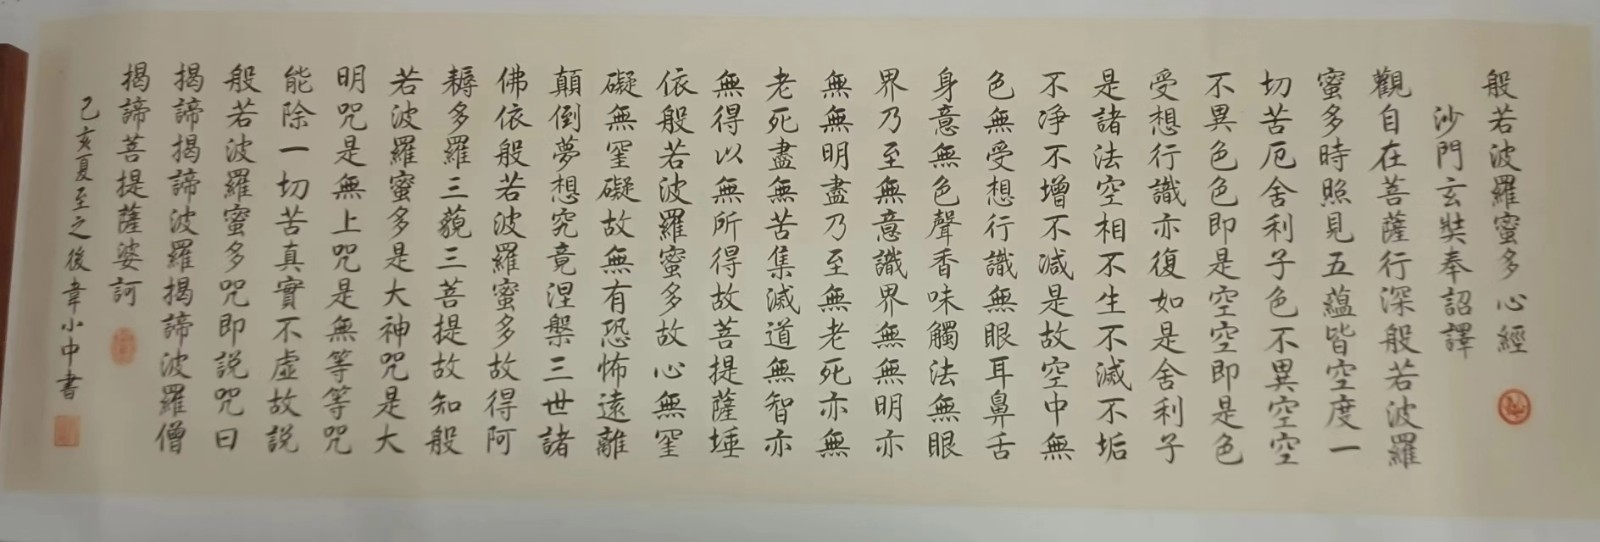 般若波羅蜜多心經
沙門玄奘奉詔譯
觀自在菩薩行深般若波羅
蜜多時照見五蘊皆空度一
切苦厄舍利子色不異空空
不異色色即是空空即是色
受想行識亦復如是舍利子
是諸法空相不生不滅不垢
不净不增不減是故空中無
色無受想行識無眼耳鼻舌
身意無色聲香味觸法無眼
界乃至無意識界無無明亦
無無明盡乃至無老死亦無
老死盡無苦集滅道無智亦
無得以無所得故菩提薩埵
依般若波羅蜜多故心無罣
礙無罣礙故無有恐怖遠離
顛倒夢想究竟涅槃三世諸
佛依般若波羅蜜多故得阿
耨多羅三藐三菩提故知般
若波羅蜜多是大神咒是大
明咒是無上咒是無等等咒
能除一切苦真實不虛故説
般若波羅蜜多咒即説咒曰
揭諦揭諦波羅揭諦波羅僧
揭諦菩提薩婆訶
己亥夏至之後韋小中書